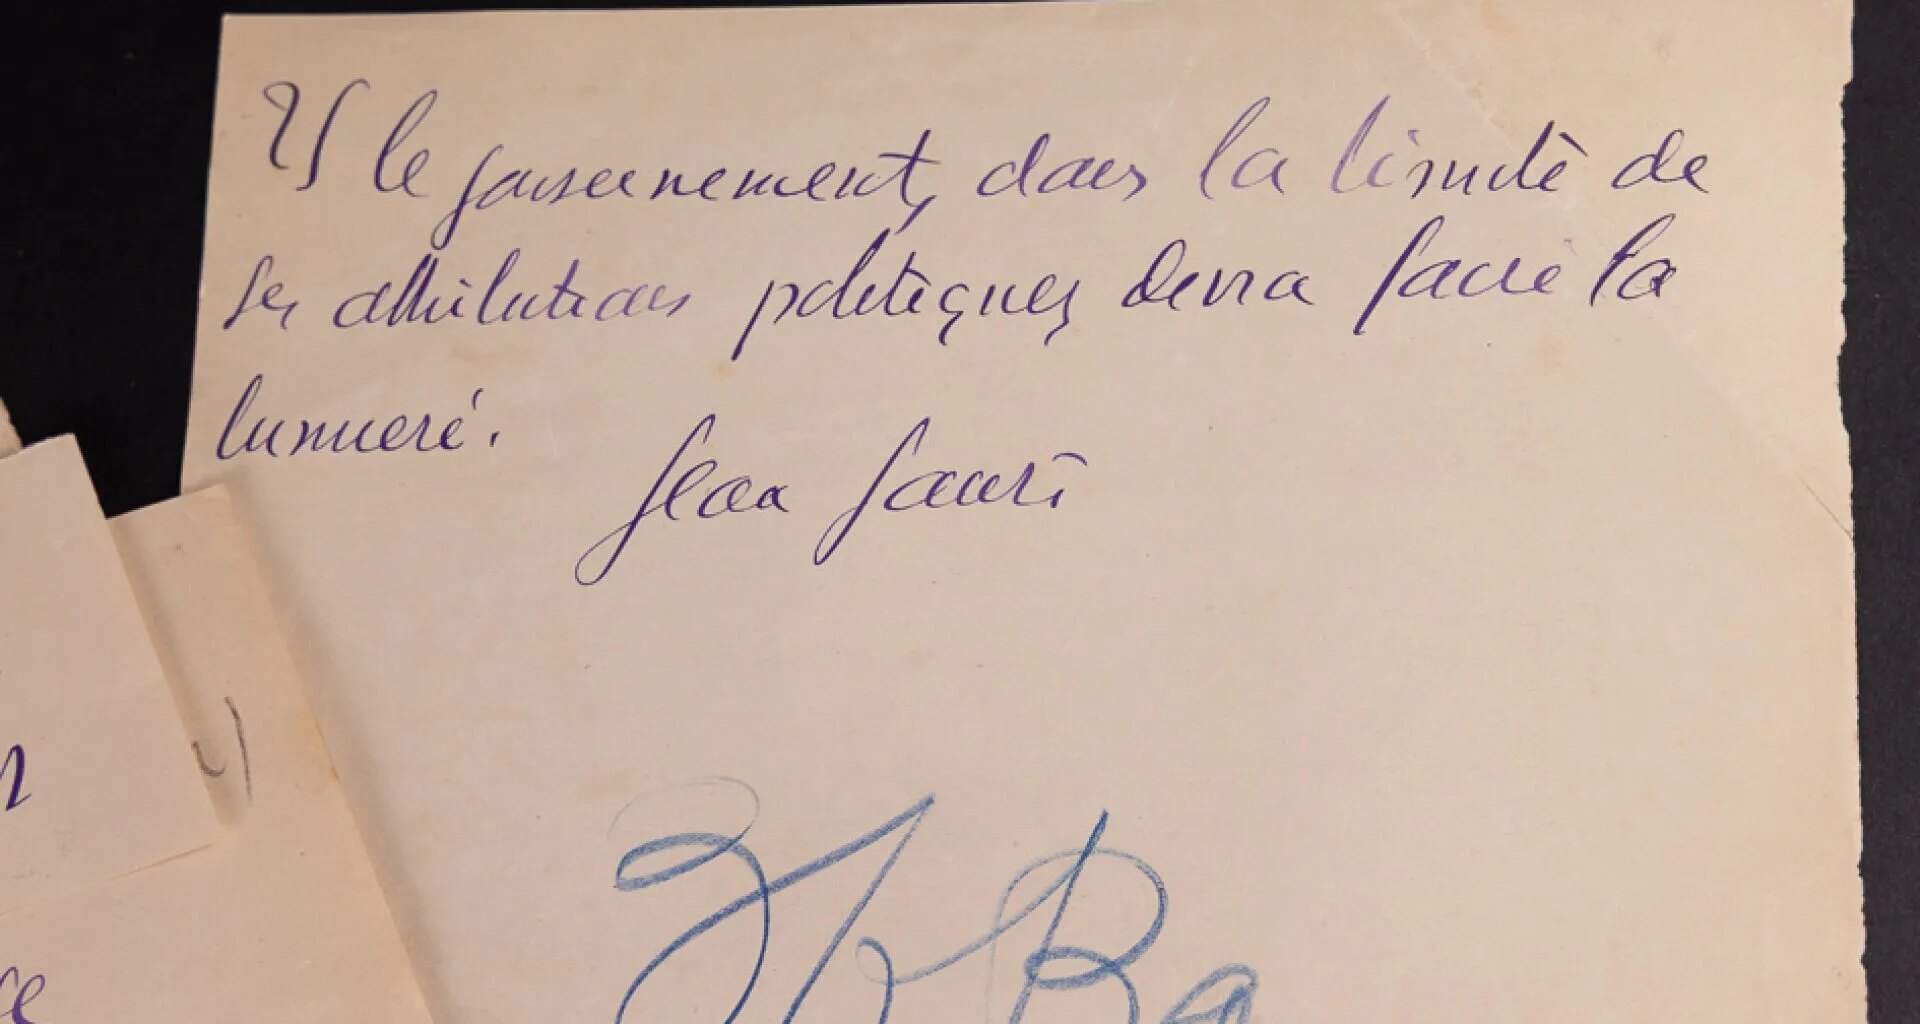 Et le gouvernement, dans la limite de
ses attributions politiques devra faire la
lumière.
Jean Jaurès